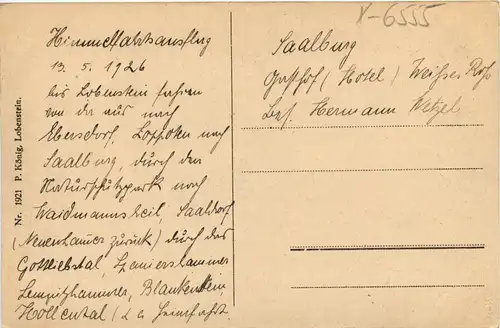 Himmelfahrtsausflug
13. 5. 1926
bis Lobenstein fahren
von da aus nach
Ebersdorf, Zoppoten nach
Saalburg, durch den
Naturschutzpark nach
Waidmannsheil, Saaldorf
(Neuenhammer zurück) durch das
Gottliebstal,
Lemnitzhammer, Blankenstein
Höllental (
Nr. 1921 P. König, Lobenstein.
X-6555
Saalburg
Gasthof (Hotel) Weisses Roß
Bes. Hermann Wetzel